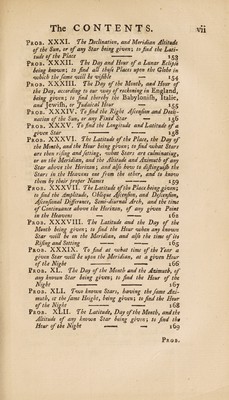 The CONTENTS. vii
PROB. XXXI. The Declination, and Meridian Altitude
of the Sun, or of any Star being given; to find the Lati-
tude of the Place 153
PROB. XXXII. The Day and Hour of a Lunar Eclipse
being known; to find all those Places upon the Globe in
which the same will be visible 154
PROB. XXXIII. The Day of the Month, and Hour of
the Day, according to our way of reckoning in England,
being given; to find thereby the Babylonish, Italic,
and Jewish, or Judaical Hour 155
PROB. XXXIV. To find the Right Ascension and Decli-
nation of the Sun, or any Fixed Star 156
PROB. XXXV. To find the Longitude and Latitude of a
given Star 158
PROB. XXXVI. The Latitude of the Place, the Day of
the Month, and the Hour being given; to find what Stars
are then rising and setting, what Stars are culminating,
or on the Meridian, and the Altitude and Azimuth of any
Star above the Horizon; and also how to distinguish the
Stars in the Heavens one from the other, and to know
them by their proper Names 159
PROB. XXXVII. The Latitude of the Place being given;
to find the Amplitude, Oblique Ascension, and Descension,
Ascensional Difference, Semi-diurnal Arch, and the time
of Continuance above the Horizon, of any given Point
in the Heavens
PROB. XXXVIII. The Latitude and the Day of the
Month being given; to find the Hour when any known
Star will be on the Meridian, and also the time of its
Rising and Setting 165
PROB. XXXIX. To find at what time of the Year a
given Star will be upon the Meridian, at a given Hour
of the Night 166
PROB. XL. The Day of the Month and the Azimuth, of
any known Star being given; to find the Hour of the
Night 167
PROB. XLI. Two known Stars, having the same Azi-
muth, or the same Height, being given; to find the Hour
of the Night 168
PROB. XLII. The Latitude, Day of the Month, and the
Altitude of any known Star being given; to find the
Hour of the Night 169
PROB.